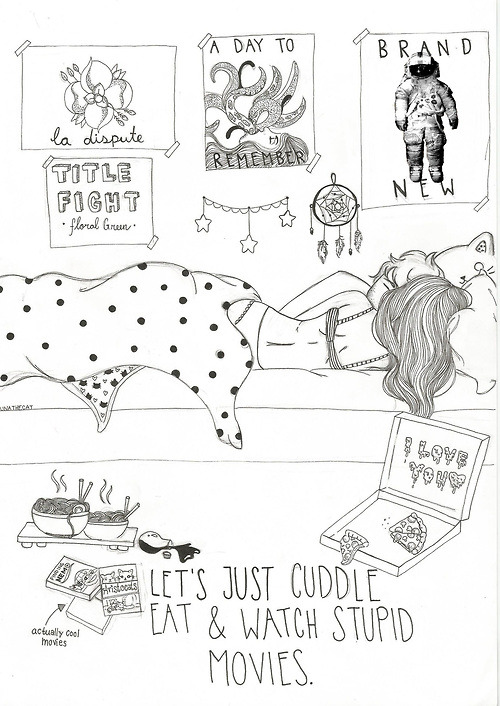 la dispute
A DAY TO
REMEMBER
BRAND
NEW
TITLE
FIGHT
· floral Green ·
LUNATHECAT
I LOVE
YOU
FINDING
NEMO
Aristocats
actually cool
movies
LET'S JUST CUDDLE
EAT & WATCH STUPID
MOVIES.